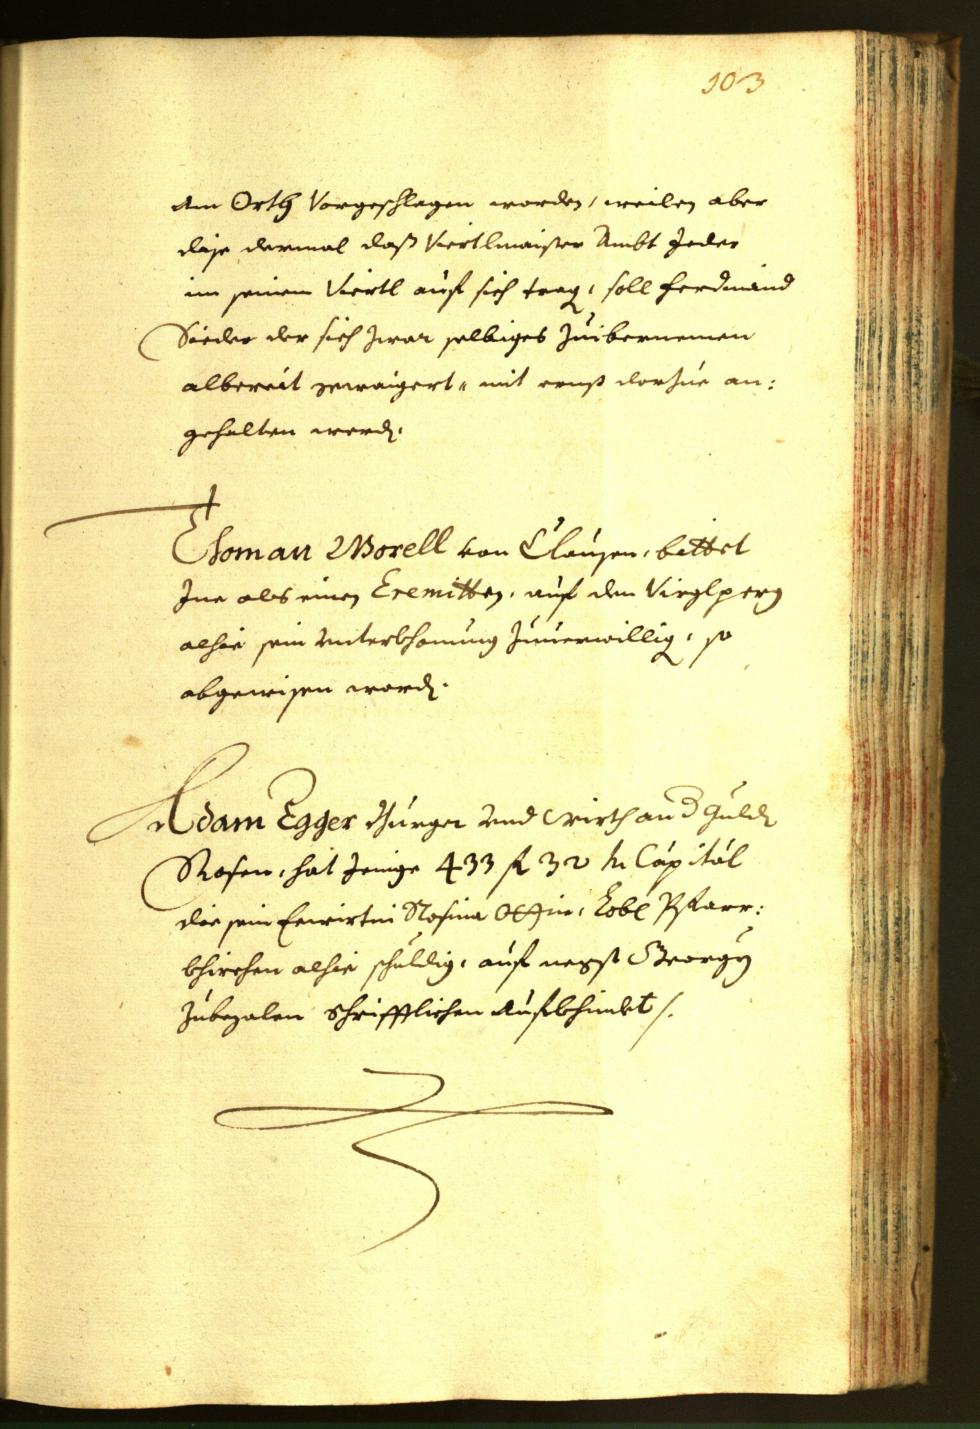 103
am Orth Vorgeschlagen worden, weilen aber
dise dermal daß Viertlmaister Ambt Jeder
im seinem Viertl auf sich trag, soll Ferdinand
Sieder der sich zwar selbiges zuibernemen
albereit gewaigert, mit ernst darzue an:
gehalten werd.
Thoman Morell von Clausen, bittet
Jne als einen Eremitten, auf dem Virglperg
alhie sein Unterkhomung zuuerwillig, so
abgewisen word.
Adam Egger Burger Und Wirth an d Guld
Rosen, hat Jenige 433 f 32 kr Capital
die sein Ewirtin Rosina Lobl Pfarr:
khirchen alhie schuldig, auf negst Georgy
zubezalen schrifftlichen Aufkhindt /.